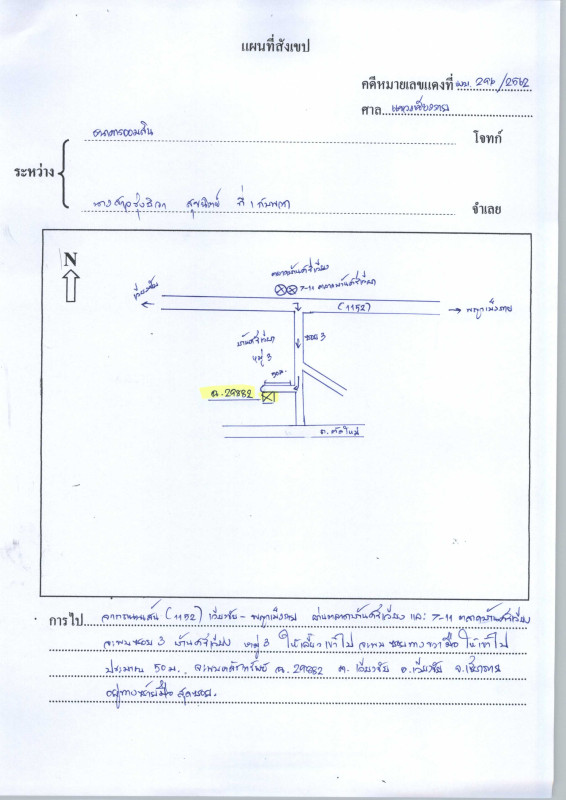 แผนที่สังเขป
คดีหมายเลขแดงที่ ผบ. 296/2562
ศาล แขวงเชียงราย
ธนาคารออมสิน โจทก์
ระหว่าง
นางสาว สุขนิตย์ ที่ 1 กับพวก จำเลย
N
7-11
(1152)
พญาเม็งราย
ซอย 3
หมู่ 3
50ม.
ฉ.29882
การไป จากถนนเส้น (1152) เวียงชัย - พญาเม็งราย ผ่านตลาดบ้านศรีเวียง และ 7-11 ตลาดบ้านศรีเวียง
จะพบซอย 3 บ้านศรีเวียง หมู่ 3 ให้เลี้ยวเข้าไป จะพบซอยทางขวามือ ให้เข้าไป
ประมาณ 50 ม. จะพบหลักทรัพย์ ฉ.29882 ต. เวียงชัย อ.เวียงชัย จ.เชียงราย
อยู่ทางซ้ายมือ สุดซอย.